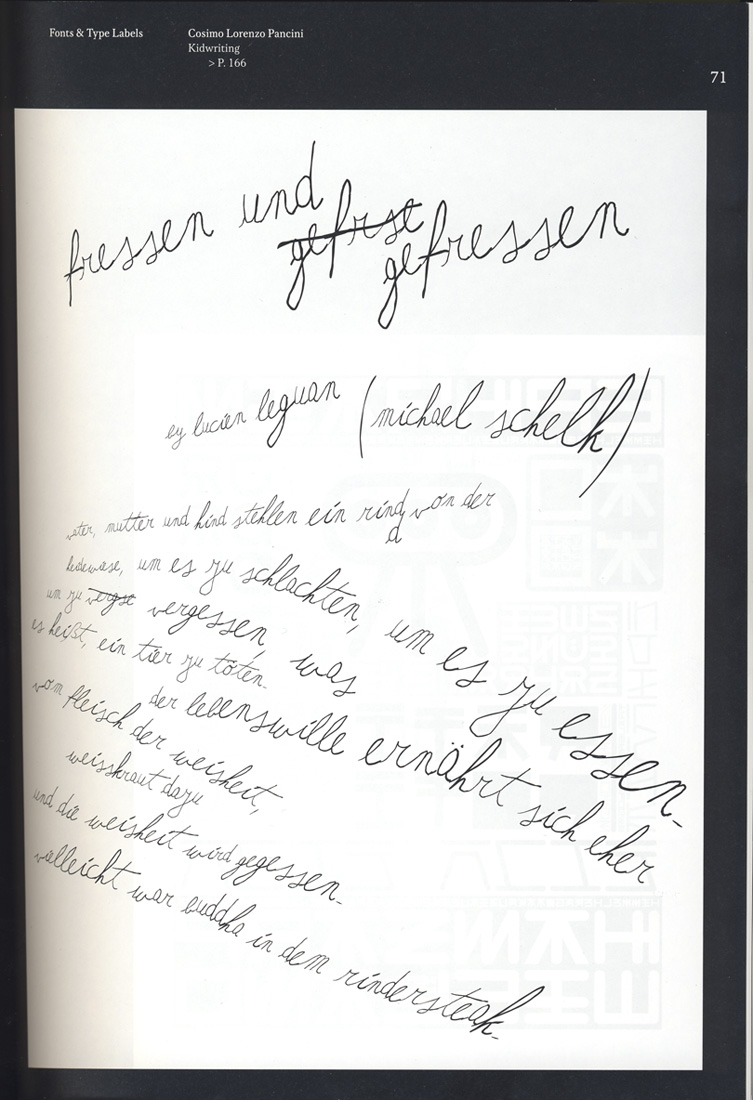 Fonts & Type Labels
Cosimo Lorenzo Pancini
Kidwriting
> P. 166
71
fressen und
gefrse
gefressen
by lucien leguan (michael schelk)
vater, mutter und kind stehlen ein rind von der
d
heidewase, um es zu schlachten, um es zu essen-
um zu vergse vergessen, was
es heißt, ein tier zu töten-
der lebenswille ernährt sich eher
vom fleisch der weisheit,
weisskraut dazu
und die weisheit wird gegessen-
vielleicht war buddha in dem rindersteak-